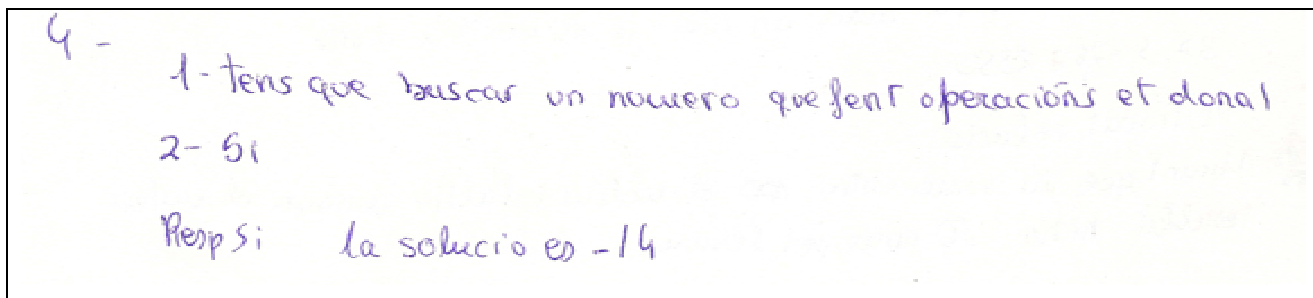 4 -
1- tens que buscar un numero que fent operacions et dona 1
2- Si
Resp Si la solucio es -14